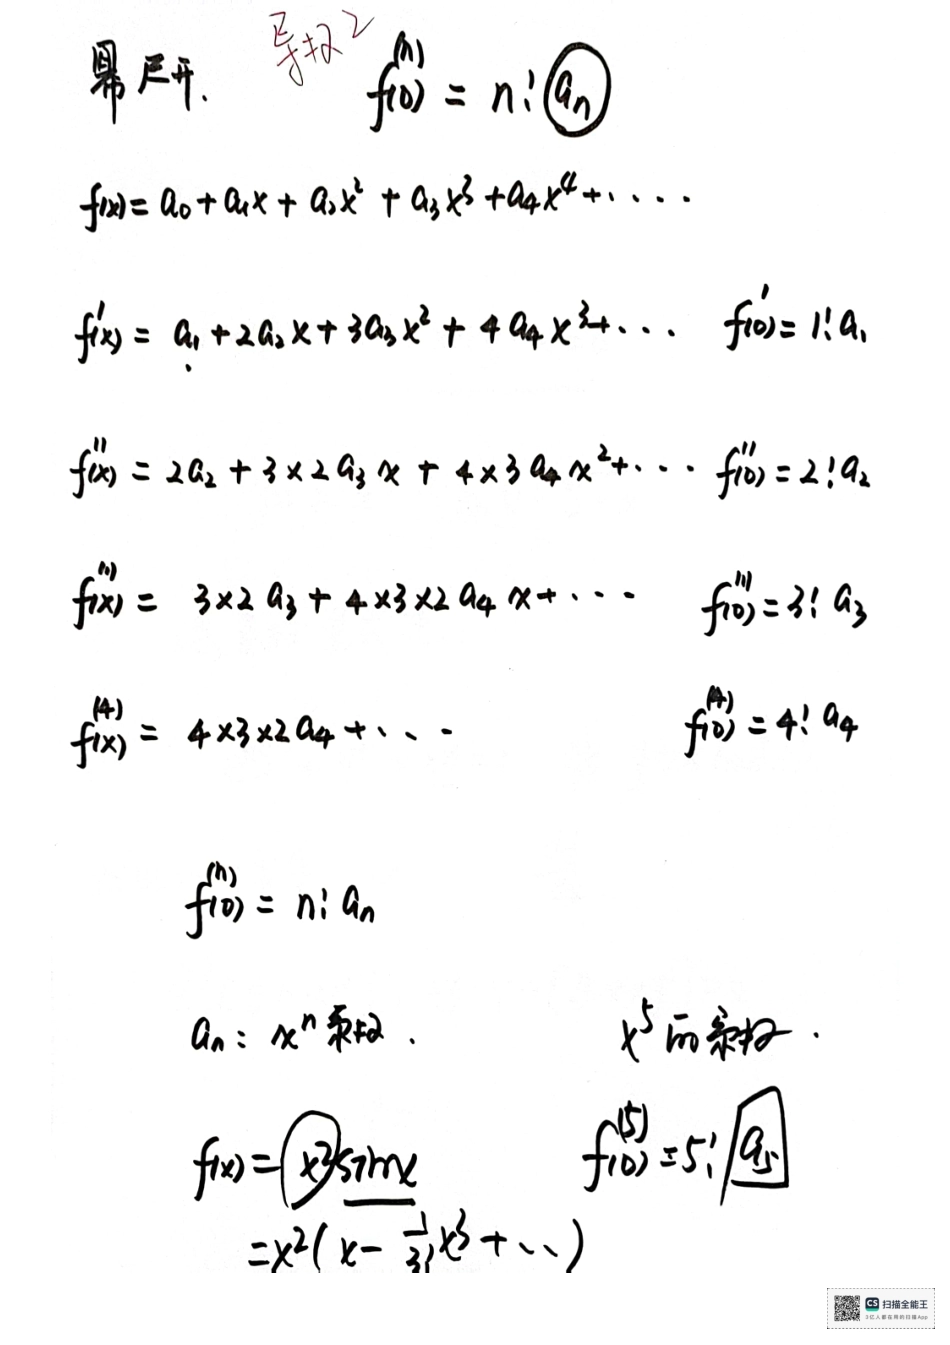 导数2
幂展开. f⁽ⁿ⁾(0) = n! aₙ
f(x) = a₀ + a₁x + a₂x² + a₃x³ + a₄x⁴ + ····
f'(x) = a₁ + 2a₂x + 3a₃x² + 4a₄x³ + ··· f'(0) = 1! a₁
f''(x) = 2a₂ + 3×2a₃x + 4×3a₄x² + ··· f''(0) = 2! a₂
f'''(x) = 3×2a₃ + 4×3×2a₄x + ··· f'''(0) = 3! a₃
f⁽⁴⁾(x) = 4×3×2a₄ + ··· f⁽⁴⁾(0) = 4! a₄
f⁽ⁿ⁾(0) = n! aₙ
aₙ: xⁿ系数. x⁵的系数.
f(x) = x²sinx f⁽⁵⁾(0) = 5! a₅
= x²(x - 1/3! x³ + ···)
CS 扫描全能王
3亿人都在用的扫描App